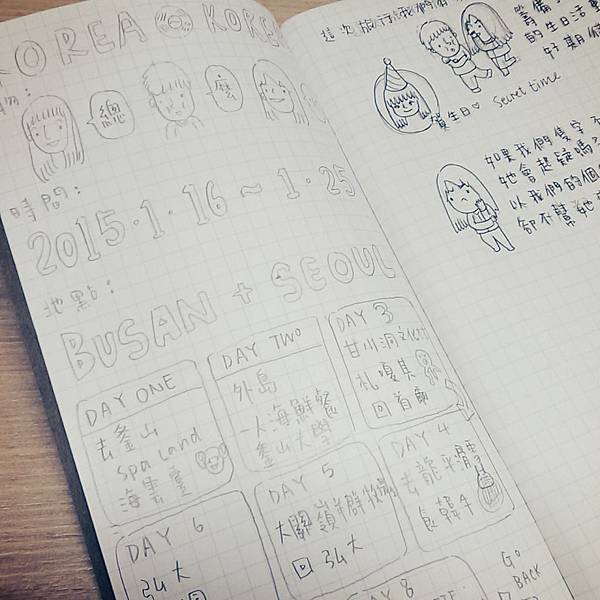 KOREA KOREA
物：
總
麼
時間：
2015.1.16 ~ 1.25
地點：
BUSAN + SEOUL
DAY ONE
去釜山
Spa Land
海雲臺
DAY TWO
外島
一人海鮮餐
釜山大學
DAY 3
甘川洞文化村
札嘎其
回首爾
DAY 4
去龍平滑雪
食韓牛
DAY 5
大關嶺羊群牧場
回弘大
DAY 6
弘大
DAY 8
GO
BACK
這次旅行我們有
籌備
的生日活動
好期待
生日♡ secret time
如果我們隻字不
她會起疑嗎？
以我們的個
卻不幫她